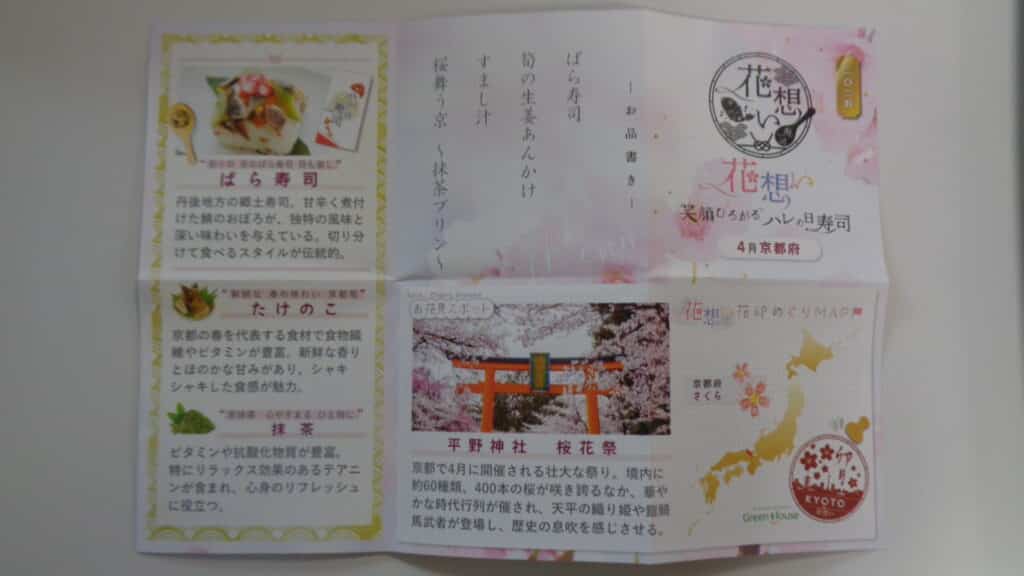 ばら寿司
丹後地方の郷土寿司。甘辛く煮付
けた鯖のおぼろが、独特の風味と
深い味わいを与えている。切り分
けて食べるスタイルが伝統的。
たけのこ
京都の春を代表する食材で食物繊
維やビタミンが豊富。新鮮な香り
とほのかな甘みがあり、シャキ
シャキした食感が魅力。
抹茶
ビタミンや抗酸化物質が豊富。
特にリラックス効果のあるテアニ
ンが含まれ、心身のリフレッシュ
に役立つ。
―お品書き―
ばら寿司
筍の生姜あんかけ
すまし汁
桜舞う京 ～抹茶プリン～
お花見スポット
平野神社 桜花祭
京都で4月に開催される壮大な祭り。境内に
約60種類、400本の桜が咲き誇るなか、華や
かな時代行列が催され、天平の織り姫や鎧鎖
馬武者が登場し、歴史の息吹を感じさせる。
花想い
花想い
笑顔ひろがる ハレの日寿司
4月京都府
花想い花印めぐりMAP
京都府
さくら
卯月
KYOTO
Green House